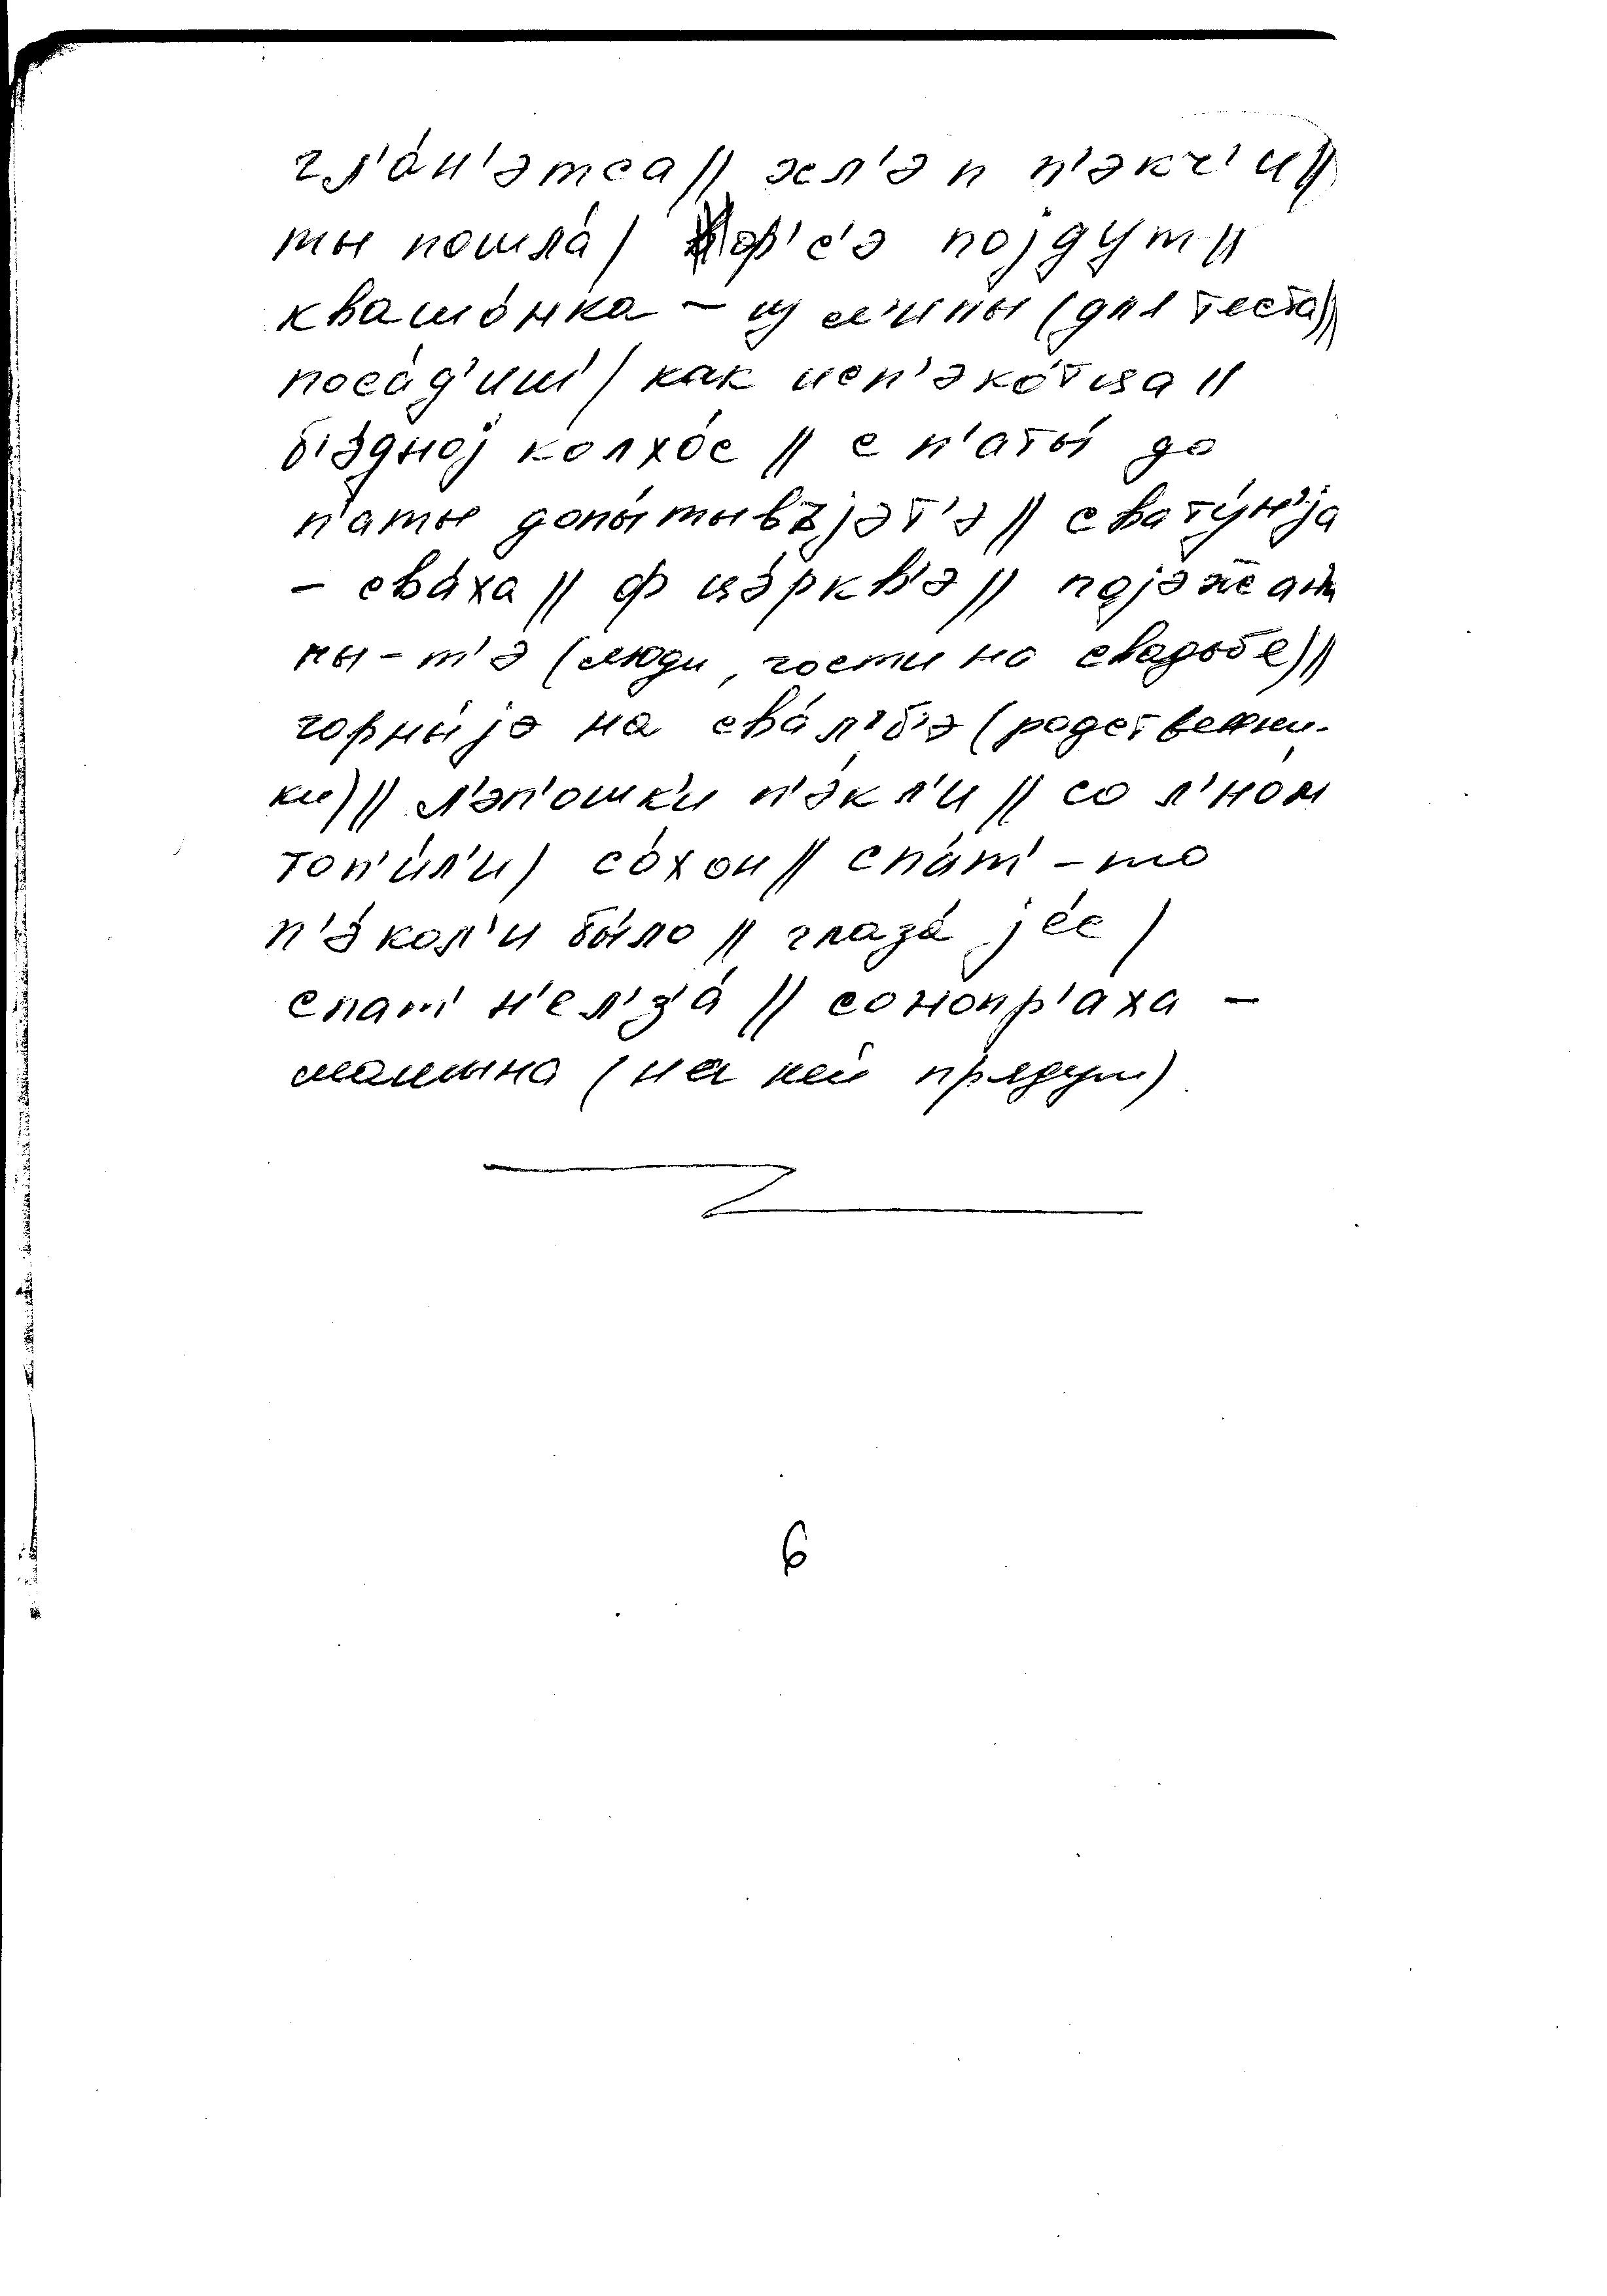 гл'а́н'этса || хл'эп п'экч'и ||
ты пошла́ / ф'с'э појдут ||
квашо́нка – из л'ипы (для теста) ||
поса́д'иш' / как исп'эко́тца ||
б'э́дној колхо́с || с п'аты́ до
п'аты допы́тывъјэт'э || свату́н'ја
– сва́ха || ф цэ́ркв'э || појэжжа́н
ны-т'э (люди, гости на свадьбе) ||
горны́јэ на сва́л'б'э (родственни-
ки) || л'эп'ошк'и п'э́кл'и || со л'но́м
топ'и́л'и / со́хон || спа́т'-то
н'э́кол'и бы́ло || глаза́ јес /
спат' н'ел'з'а́ || сонопр'аха –
машына (на ней прядут)
6